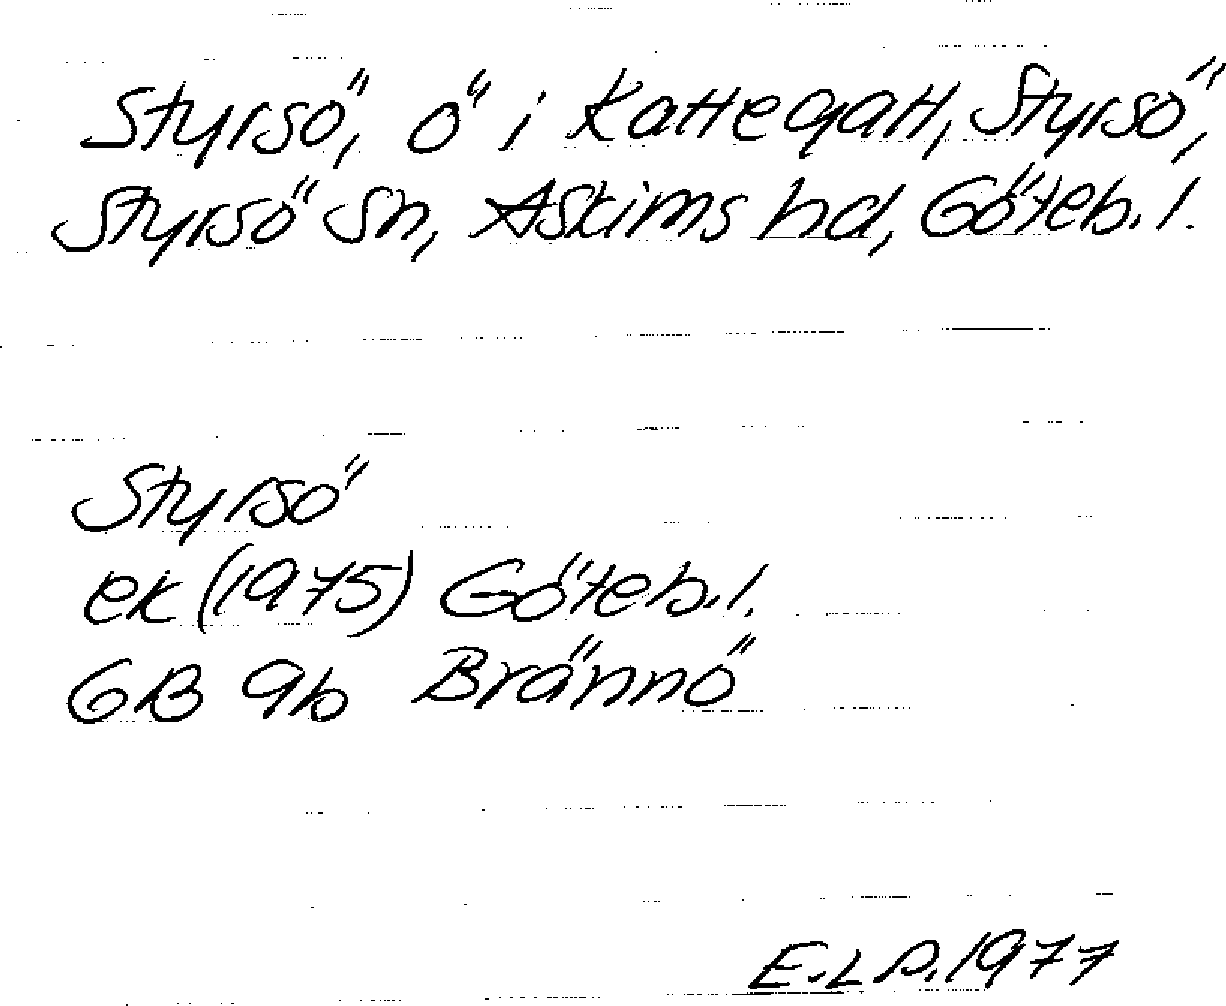 Styrsö, ö i Kattegatt, Styrsö,
Styrsö sn, Askims hd, Göteb. l.
Styrsö
ek (1975) Göteb. l.
GB 9b Brännö
E.L.P. 1977